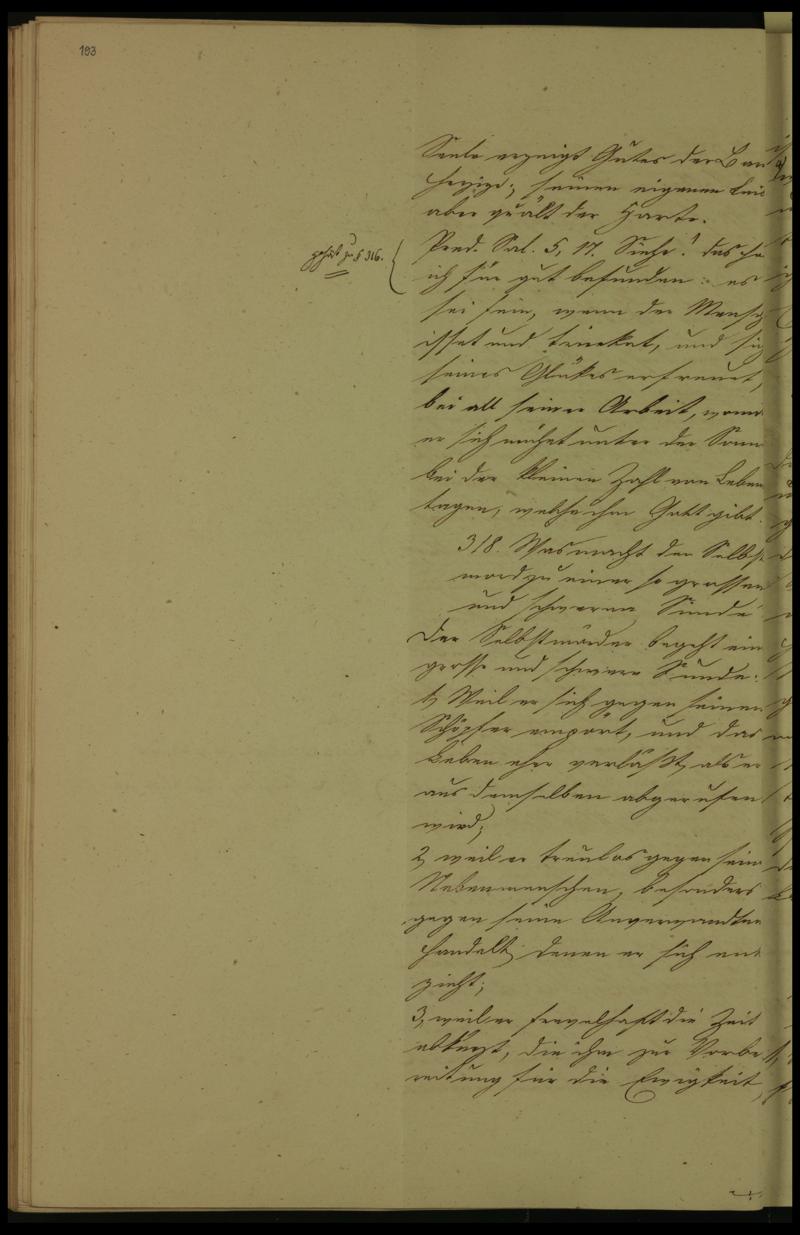 193
Seele erzeigt Gutes der Barm
herzige; seinen eigenen Leib
aber quält der Harte.
gehört zu § 316.
Pred. Sal. 5, 17. Siehe! das ha
ich für gut befunden: es
sei fein, wenn der Mensch
isset und trinket, und sich
seines Glückes erfreuet,
bei all seiner Arbeit, womit
er sich mühet unter der Sonn
bei der kleinen Zahl von Leben
tagen, welche ihm Gott gibt.
318. Was macht den Selbst
mord zu einer so grossen
und schweren Sünde
Der Selbstmörder begeht ein
grosse und schwere Sünde:
1, Weil er sich gegen seinen
Schöpfer empört, und das
Leben eher verläßt, als er
aus demselben abgerufen
wird;
2, weil er treulos gegen seine
Nebenmenschen, besonders
gegen seine Anverwandten
handelt, denen er sich ent
zieht;
3, weil er frevelhaft die Zeit
abkürzt, die ihm zur Vorbe
reitung für die Ewigkeit,